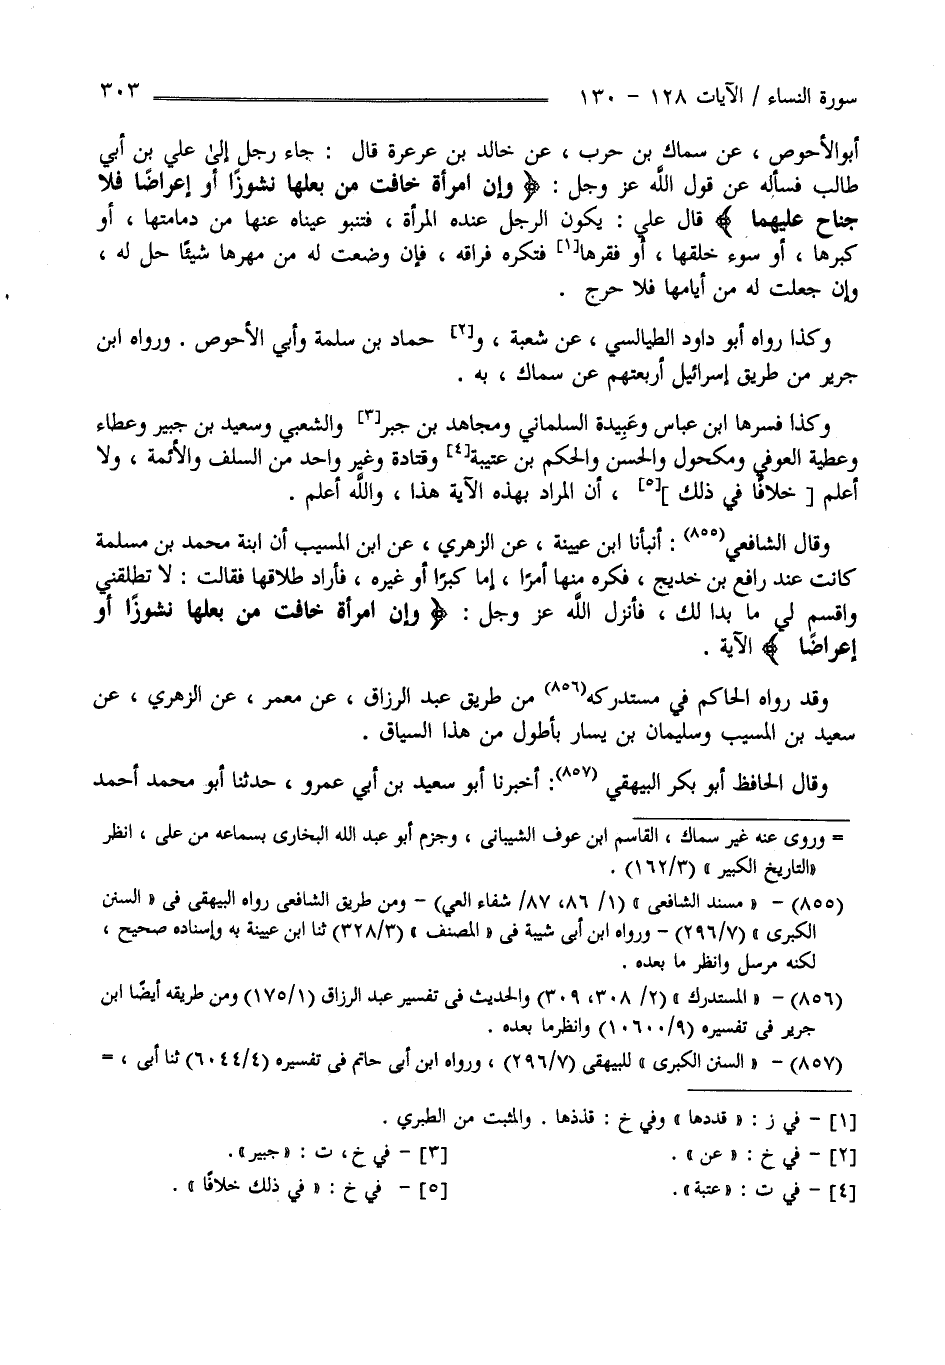 سورة النساء / الآيات ١٢٨ – ١٣٠ ٣٠٣
أبوالأحوص ، عن سماك بن حرب ، عن خالد بن عرعرة قال : جاء رجل إلىٰ علي بن أبي
طالب فسأله عن قول اللَّه عز وجل : ﴿ وإن امرأة خافت من بعلها نشوزًا أو إعراضًا فلا
جناح عليهما ﴾ قال علي : يكون الرجل عنده المرأة ، فتنبو عيناه عنها من دمامتها ، أو
كبرها ، أو سوء خلقها ، أو فقرها[١] فتكره فراقه ، فإن وضعت له من مهرها شيئًا حل له ،
وإن جعلت له من أيامها فلا حرج .
وكذا رواه أبو داود الطيالسي ، عن شعبة ، و[٢] حماد بن سلمة وأبي الأحوص . ورواه ابن
جرير من طريق إسرائيل أربعتهم عن سماك ، به .
وكذا فسرها ابن عباس وعَبِيدة السلماني ومجاهد بن جبر[٣] والشعبي وسعيد بن جبير وعطاء
وعطية العوفي ومكحول والحسن والحكم بن عتيبة[٤] وقتادة وغير واحد من السلف والأئمة ، ولا
أعلم [ خلافًا في ذلك ][٥] ، أن المراد بهذه الآية هذا ، واللَّه أعلم .
وقال الشافعي(٨٥٥) : أنبأنا ابن عيينة ، عن الزهري ، عن ابن المسيب أن ابنة محمد بن مسلمة
كانت عند رافع بن خديج ، فكره منها أمرًا ، إما كبرًا أو غيره ، فأراد طلاقها فقالت : لا تطلقني
واقسم لي ما بدا لك ، فأنزل اللَّه عز وجل : ﴿ وإن امرأة خافت من بعلها نشوزًا أو
إعراضًا ﴾ الآية .
وقد رواه الحاكم في مستدركه(٨٥٦) من طريق عبد الرزاق ، عن معمر ، عن الزهري ، عن
سعيد بن المسيب وسليمان بن يسار بأطول من هذا السياق .
وقال الحافظ أبو بكر البيهقي (٨٥٧): أخبرنا أبو سعيد بن أبي عمرو ، حدثنا أبو محمد أحمد
= وروى عنه غير سماك ، القاسم ابن عوف الشيبانى ، وجزم أبو عبد الله البخارى بسماعه من على ، انظر
«التاريخ الكبير » (١٦٢/٣) .
(٨٥٥) – « مسند الشافعى » (١/ ٨٦، ٨٧/ شفاء العي) – ومن طريق الشافعى رواه البيهقى فى « السنن
الكبرى » (٢٩٦/٧) – ورواه ابن أبى شيبة فى « المصنف » (٣٢٨/٣) ثنا ابن عيينة به وإسناده صحيح ،
لكنه مرسل وانظر ما بعده .
(٨٥٦) – « المستدرك » (٢/ ٣٠٨، ٣٠٩) والحديث فى تفسير عبد الرزاق (١٧٥/١) ومن طريقه أيضًا ابن
جرير فى تفسيره (١٠٦٠٠/٩) وانظرما بعده .
(٨٥٧) – « السنن الكبرى » للبيهقى (٢٩٦/٧) ، ورواه ابن أبى حاتم فى تفسيره (٦٠٤٤/٤) ثنا أبى ، =
[١] – في ز : « قددها » وفي خ : قذذها . والمثبت من الطبري .
[٢] – في خ : « عن » . [٣] – في خ، ت : « جبير» .
[٤] – في ت : « عتبة» . [٥] – في خ : « في ذلك خلافًا » .